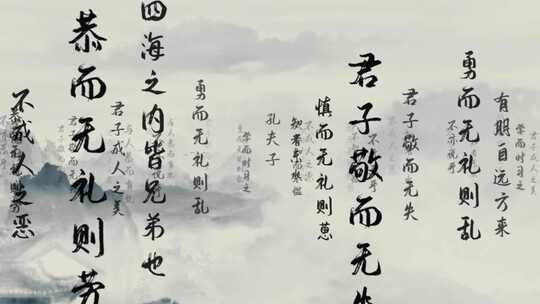 学而时习之
有朋自远方来
勇而无礼则乱
不亦说乎
君子敬而无失
君子敬而无失
慎而无礼则葸
孔夫子
学而时习之
勇而无礼则乱
四海之内皆兄弟也
君子成人之美
恭而无礼则劳
不成人之恶